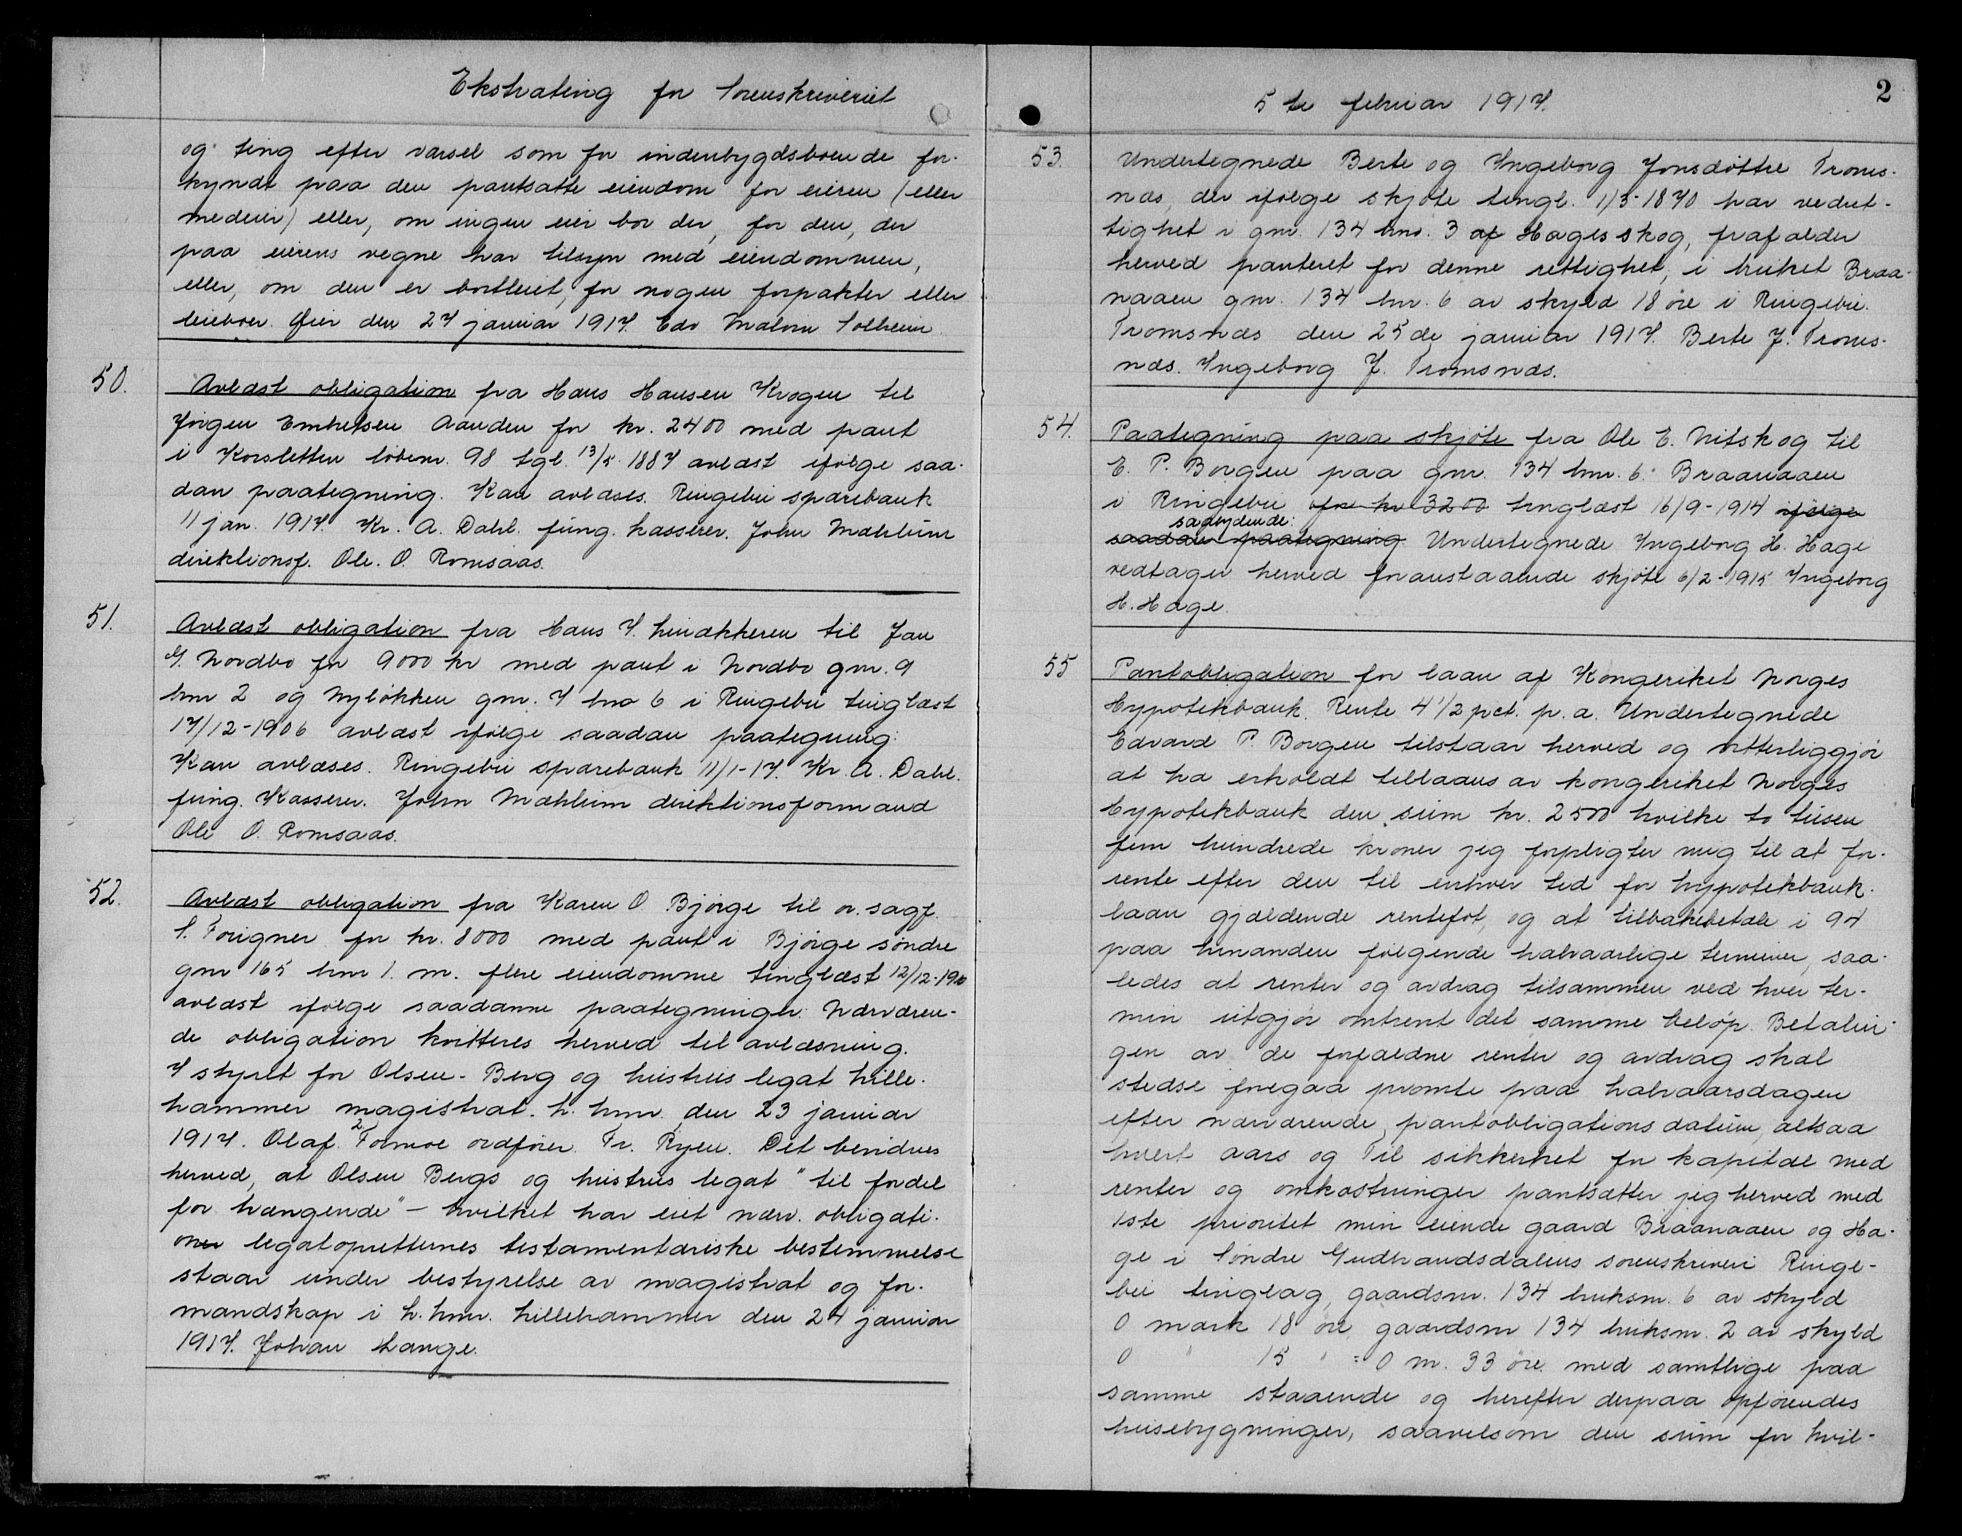 Ekstrating for Sorenskriveriet
og ting efter varsel som for indenbygdsboende for-
kyndt paa den pantsatte eiendom for eieren (eller
medeier) eller, om ingen eier bor der, for den, der
paa eierens vegne har tilsyn med eiendommen,
eller, om den er bortleiet, for nogen forpakter eller
leieboer. Øier den 27 januar 1917. Edv Malvin Solheim
50. Avlæst obligation fra Hans Hansen Krogen til
Jörgen Embretsen Aanden for kr. 2400 med pant
i Korsletten löbenr. 98 tgl. 13/5 1887 avlæst ifölge saa-
dan paategning. Kan avlæses. Ringebu sparebank
11 jan. 1917. Kr. A. Dahl. fung. kasserer. John Mæhlum
direktionsf. Ole. O. Romsaas.
51. Avlæst obligation fra Hans I. Linækkeren til Jan
G. Nordbo for 9000 kr med pant i Nordbo gnr. 9
bnr 2 og Nylökken gnr. 7 bno 6 i Ringebu tinglæst
17/12-1906 avlæst ifölge saadan paategning:
Kan avlæses. Ringebu sparebank 11/1-17. Kr. A. Dahl.
fung. Kasserer. John Mæhlum direktionsformand
Ole O. Romsaas.
52. Avlæst obligation fra Karen O Björge til o.sagf.
S. Forigner for kr. 8000 med pant i Björge söndre
gnr 165 bnr 1. m. flere eiendomme tinglæst 12/12-1910
avlæst ifölge saadanne paategninger: Nærværen-
de obligation kvitteres herved til avlæsning.
I styret for Olsen-Berg og hustrus legat Lille-
hammer magistrat. L.hmr. den 23 januar
1917. Olaf Formoe ordförer. Fr. Ryen. Det bevidnes
herved, at Olsen Bergs og hustrus legat "til fordel
for trængende" – hvilket har eiet nærv. obligati-
oner legatopretternes testamentariske bestemmelse
staar under bestyrelse av magistrat og for-
mandskap i L.hmr. Lillehammer den 24 januar
1917. Johan Lange.
5 te februar 1917.
2
53. Undertegnede Berte og Ingeborg Jonsdöttre Troms-
næs, der ifölge skjöte tingl. 1/3-1870 har vedret-
tighet i gnr. 134 bno. 3 af Hages skog, frafalder
herved panteret for denne rettighet, i bruket Braa-
naaen gnr. 134 bnr. 6 av skyld 18 öre i Ringebu.
Tromsnæs den 25de januar 1917. Berte J. Troms-
næs. Ingeborg J. Tromsnæs.
54. Paategning paa skjöte fra Ole E. Nitskog til
E. P. Borgen paa gnr. 134 bnr. 6. Braanaaen
i Ringebu for kr 3200 tinglæst 16/9-1914 ifölge
saalydende:
saadan paategning Undertegnede Ingeborg H. Hage
vedtager herved foranstaaende skjöte 6/2-1915 Ingeborg
H. Hage.
55 Pantobligation for laan af Kongeriket Norges
Hypotekbank. Rente 4 1/2 pct. p. a. Undertegnede
Edvard P. Borgen tilstaar herved og vitterliggjör
at ha erholdt tillaans av kongeriket Norges
Hypotekbank den sum kr. 2500 hvilke to tusen
fem hundrede kroner jeg forpligter mig til at for-
rente efter den til enhver tid for hypotekbank-
laan gjældende rentefot, og at tilbakebetale i 94
paa hinanden fölgende halvaarlige terminer, saa-
ledes at renter og avdrag tilsammen ved hver ter-
min utgjör omtrent det samme belöp. Betalin-
gen av de forfaldne renter og avdrag skal
stedse foregaa promte paa halvaarsdagen
efter nærværende pantobligations datum, altsaa
hvert aars og Til sikkerhet for kapital med
renter og omkostninger pantsætter jeg herved med
1ste prioritet min eiende gaard Braanaaen og Ha-
ge i Söndre Gudbrandsdalens sorenskriveri Ringe-
bu tinglag, gaardsnr. 134 bruksnr. 6 av skyld
0 mark 18 öre, gaardsnr 134 bruksnr. 2 av skyld
0 " 15 " = 0 m. 33 öre med samtlige paa
samme staaende og herefter derpaa opförendes
husebygninger, saavelsom den sum for hvil-